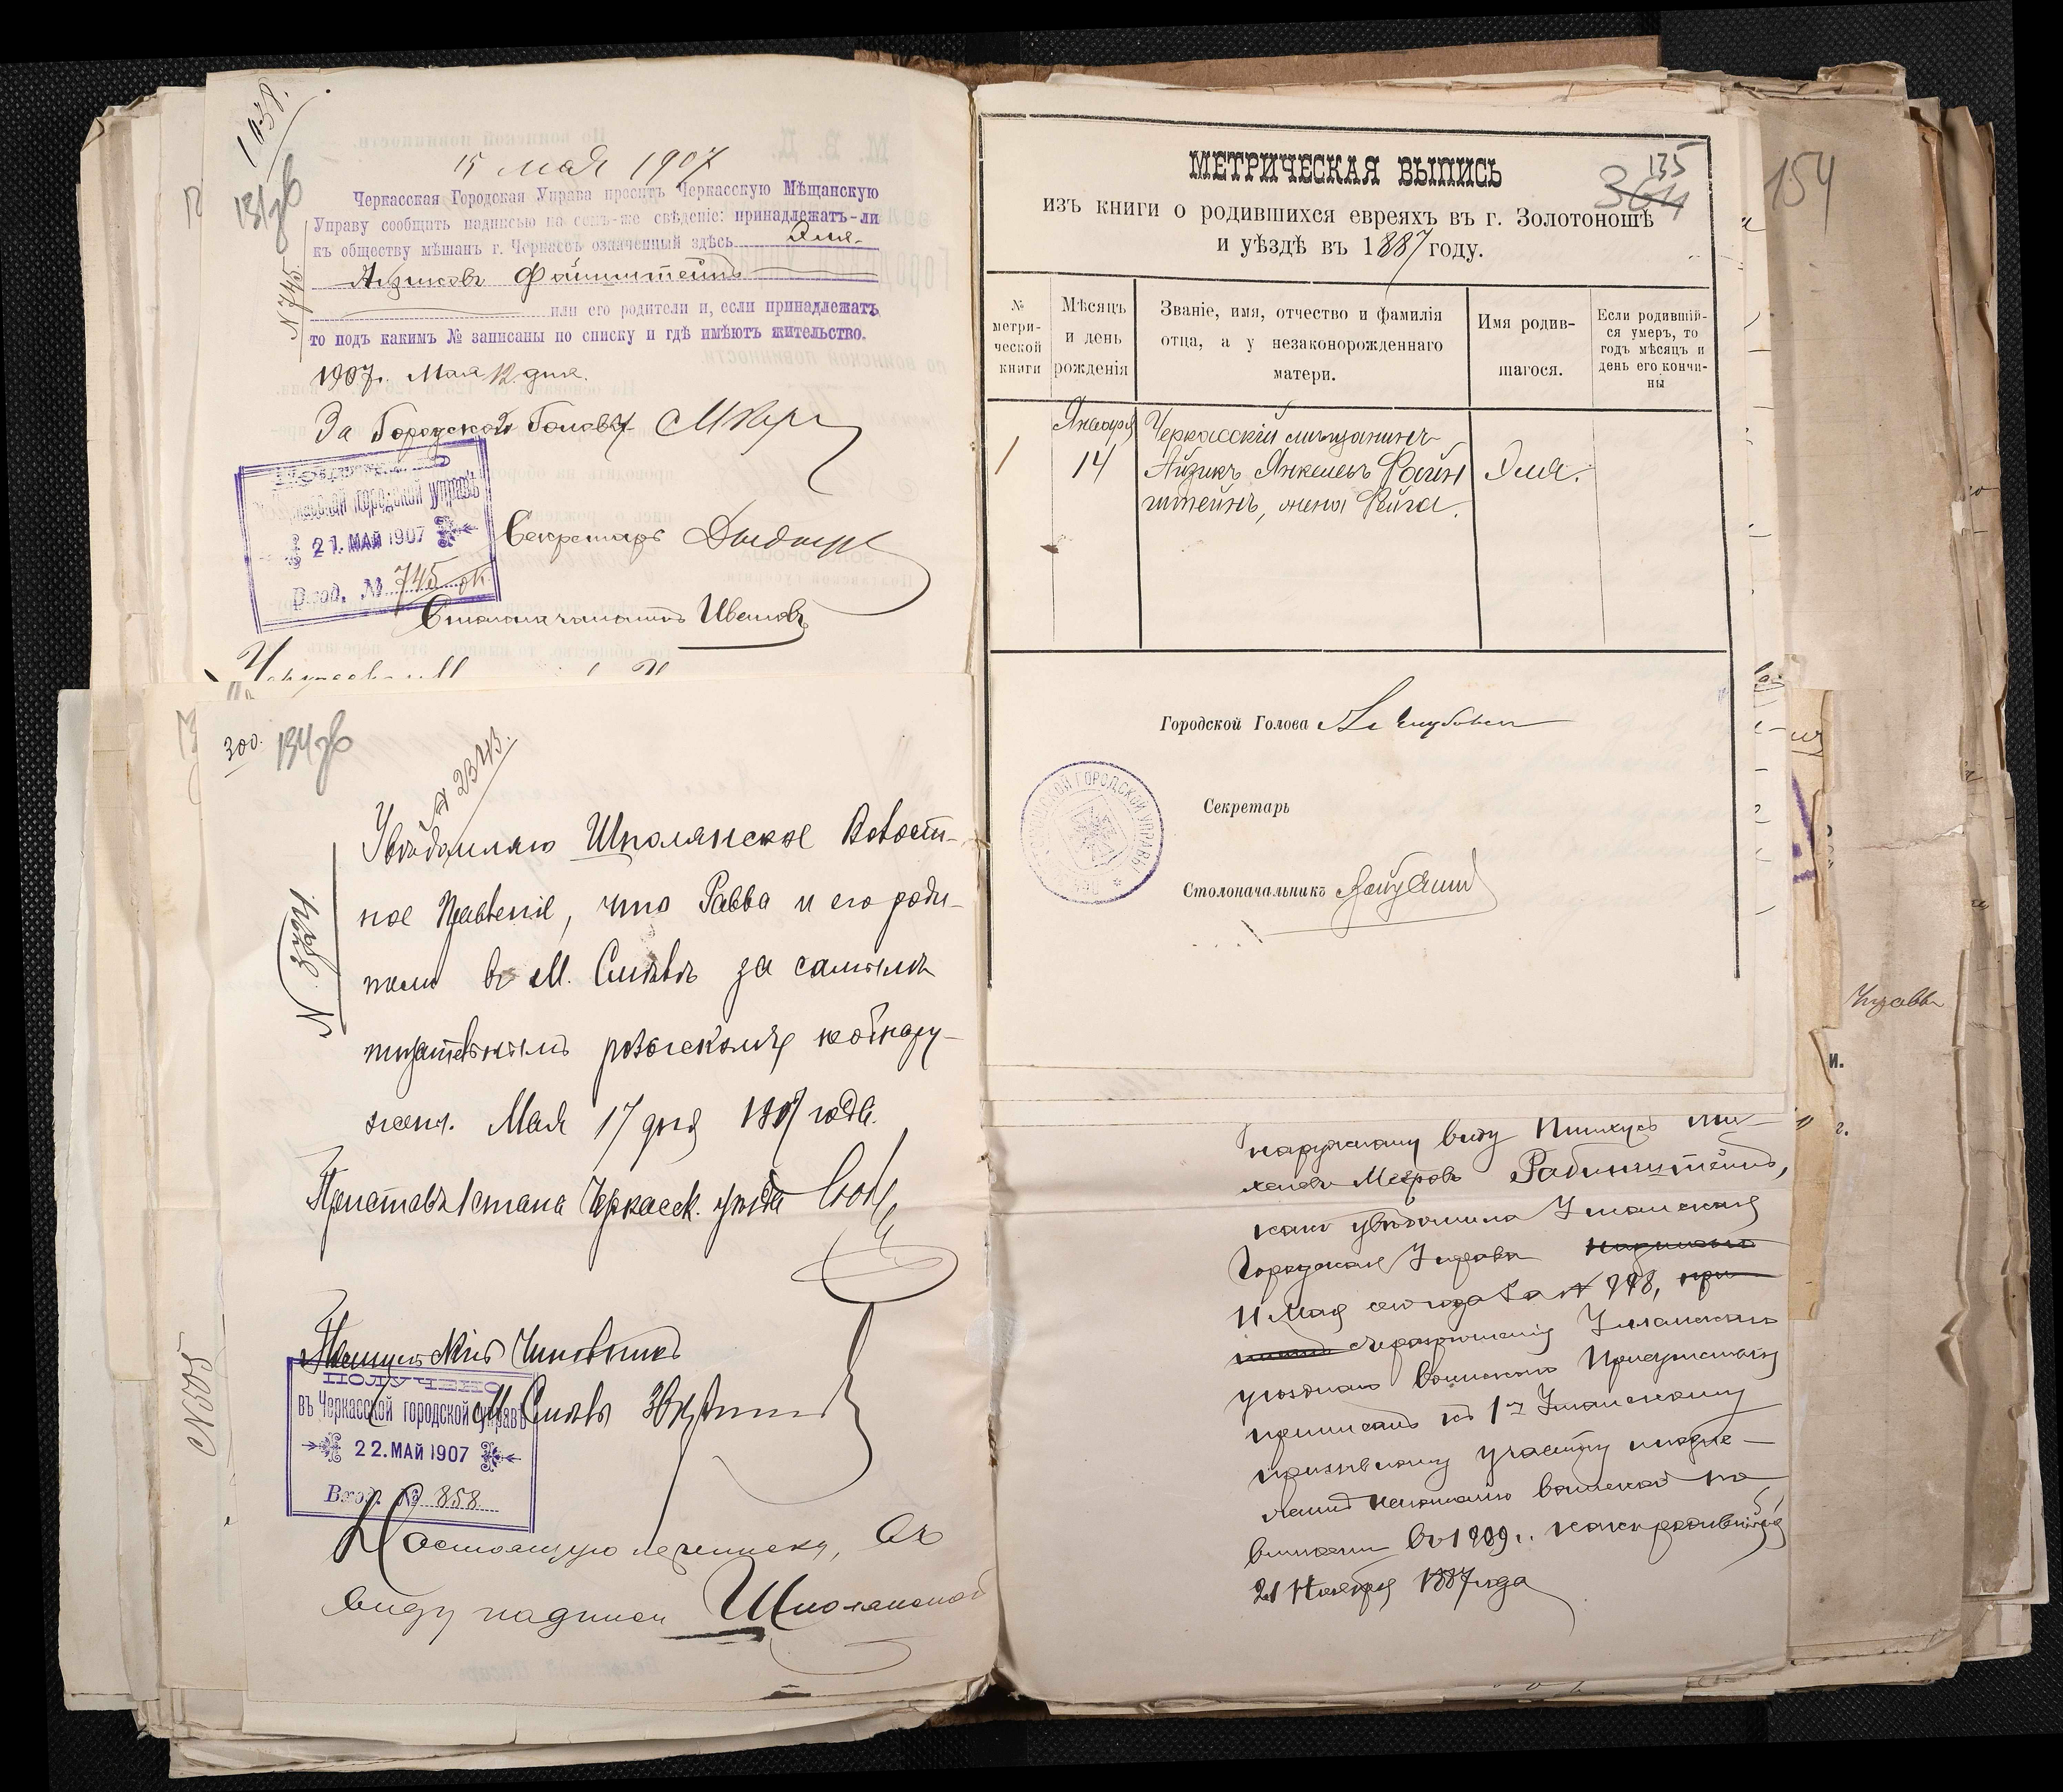 1038.
131об
15 мая 1907
Черкасская Городская Управа проситъ Черкасскую Мѣщанскую
Управу сообщить надписью на семъ-же свѣденіе: принадлежатъ-ли
къ обществу мѣщанъ г. Черкассъ означенный здѣсь Эля-
Айзиковъ Файнштейнъ
или его родители и, если принадлежатъ
то подъ какимъ № записаны по списку и гдѣ имѣютъ жительство.
N 745
1907. Мая 12 дня.
За Городского Голову
Черкасской городской управѣ
21. МАЙ 1907
Вход. № 745
Секретарь
Столоначальникъ Ивановъ
300.
134об
N 2343.
Увѣдомляю Шполянское Волост-
ное Правленіе, что Равва и его роди-
тели въ М. Смѣлѣ за самымъ
тщательнымъ розыскомъ необнару-
жены. Мая 17 дня 1907 года.
Приставъ 1 стана Черкасск. уѣзда
Полицейскій Чиновникъ
М. Смѣлы
ПОЛУЧЕНО
въ Черкасской городской управѣ
22. МАЙ 1907
Вход. № 858
N 505
Настоящую переписку, въ
виду надписи Шполянской
МЕТРИЧЕСКАЯ ВЫПИСЬ
135
364
изъ книги о родившихся евреяхъ въ г. Золотоношѣ
и уѣздѣ въ 1887 году.
№ метри-ческой книги
Мѣсяцъ и день рожденія
Званіе, имя, отчество и фамилія отца, а у незаконорожденнаго матери.
Имя родив-шагося.
Если родившій-ся умеръ, то годъ мѣсяцъ и день его кончи-ны
1
Января
14
Черкасскій мѣщанинъ
Айзикъ Янкелевъ Файн
штейнъ, жена Фейга.
Эля.
Городской Голова
Секретарь
Столоначальникъ
154
наружному виду Пинхусъ Ми-
хелевъ Меѣровъ Рабинштейнъ,
какъ увѣдомила Уманская
Городская Управа
11 Мая сего года за N 998,
Уманскаго
уѣзднаго воинскаго Присутствія
приписанъ къ 1му Уманскому
призывному участку и подле-
житъ исполненію воинской по-
винности въ 1909 г. какъ родившійся
21 Ноября 1887 года